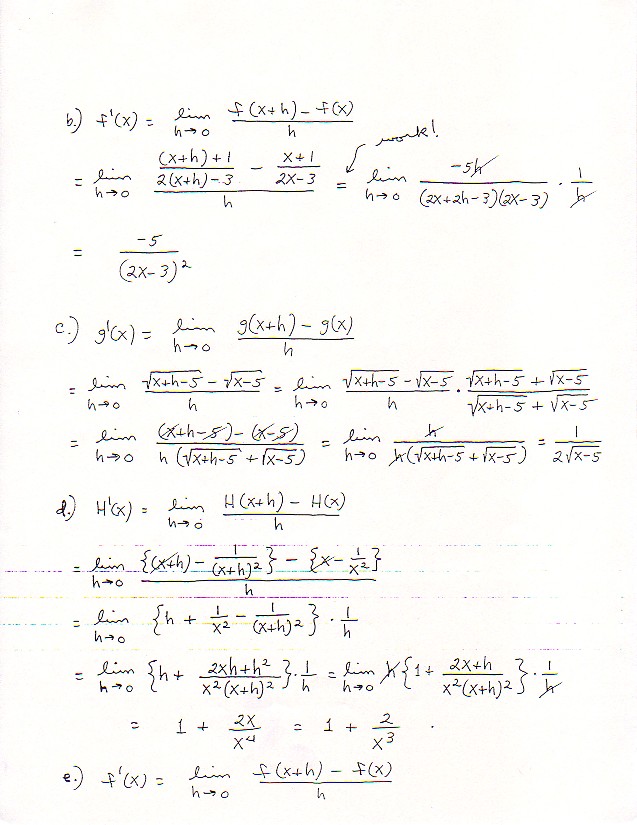 b.) f'(x) = lim h→0 (f(x+h) - f(x))/h
work!
= lim h→0 (((x+h)+1)/(2(x+h)-3) - (x+1)/(2x-3))/h = lim h→0 (-5h)/((2x+2h-3)(2x-3)) · 1/h
= -5/(2x-3)²
c.) g'(x) = lim h→0 (g(x+h) - g(x))/h
= lim h→0 (√(x+h-5) - √(x-5))/h = lim h→0 (√(x+h-5) - √(x-5))/h · (√(x+h-5) + √(x-5))/(√(x+h-5) + √(x-5))
= lim h→0 ((x+h-5) - (x-5))/(h(√(x+h-5) + √(x-5))) = lim h→0 h/(h(√(x+h-5) + √(x-5))) = 1/(2√(x-5))
d.) H'(x) = lim h→0 (H(x+h) - H(x))/h
= lim h→0 ({(x+h) - 1/(x+h)²} - {x - 1/x²})/h
= lim h→0 {h + 1/x² - 1/(x+h)²} · 1/h
= lim h→0 {h + (2xh+h²)/(x²(x+h)²)} · 1/h = lim h→0 h{1 + (2x+h)/(x²(x+h)²)} · 1/h
= 1 + 2x/x⁴ = 1 + 2/x³ .
e.) f'(x) = lim h→0 (f(x+h) - f(x))/h